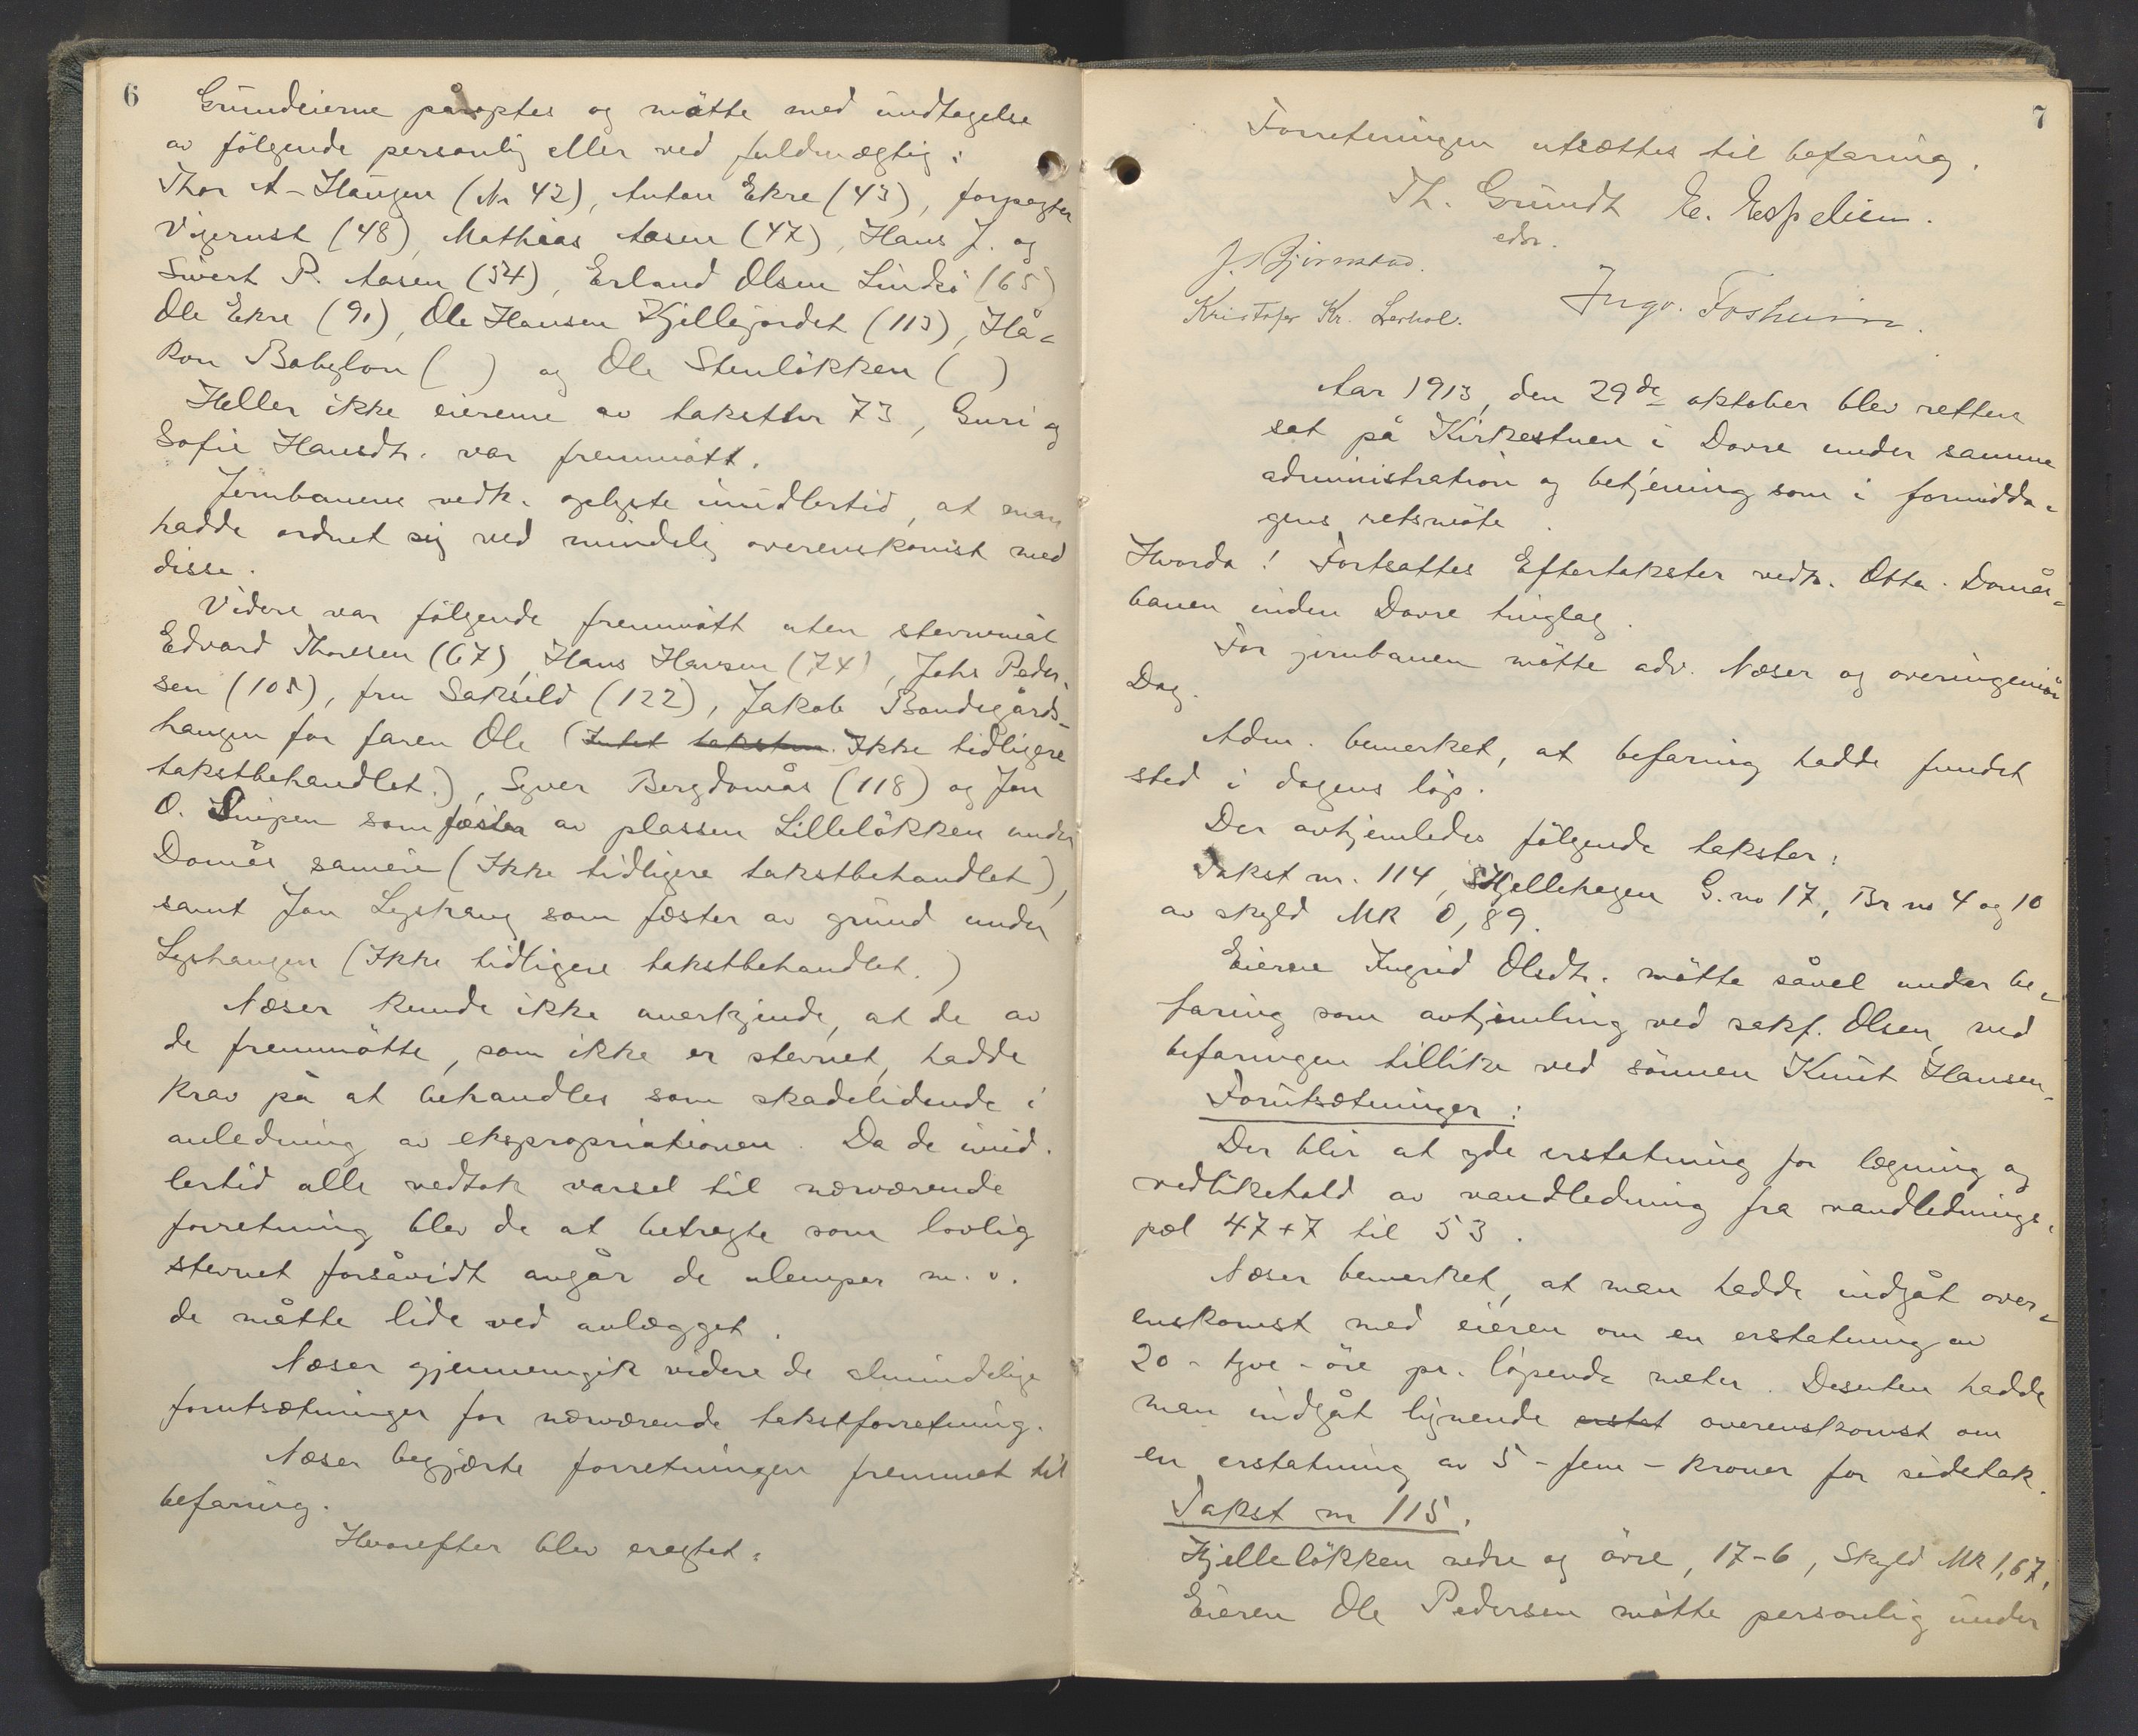 6
Grundeierne påroptes og møtte med undtagelse
av følgende personlig eller ved fuldmægtig:
Thor A-Haugen (Nr 42), Anton Ekre (43), forpagter
Vigerust (48), Mathias Aasen (47), Hans J. og
Sivert P. Aasen (54), Erland Olsen Lindsö (65)
Ole Ekre (91), Ole Hansen Kjellejordet (113), Hå-
kon Babylon ( ) og Ole Stenløkken ( )
Heller ikke eierene av takstnr 73, Guri og
Sofie Hansdtr. var fremmøtt.
Jernbanens vedk. oplyste imidlertid, at man
hadde ordnet sig ved mindelig overenskomst med
disse.
Videre var følgende fremmøtt uten stevnemål
Edvard Thoresen (67), Hans Hansen (74), Johs Peder-
sen (108), fru Saksild (122), Jakob Bondegårds-
haugen for faren Ole (Intet takstnr. Ikke tidligere
takstbehandlet.), Syver Bergdomås (118) og Jon
O. Snipen som fæster av plassen Lilleløkken under
Domås sameie (Ikke tidligere takstbehandlet),
samt Jon Lyshaug som fæster av grund under
Lyshaugen (Ikke tidligere takstbehandlet.)
Næser kunde ikke anerkjende, at de av
de fremmøtte, som ikke er stevnet, hadde
krav på at behandles som skadelidende i
anledning av ekspropriationen. Da de imid-
lertid alle vedtok varsel til nærværende
forretning blev de at betragte som lovlig
stevnet forsåvidt angår de ulemper m.v.
de måtte lide ved anlægget.
Næser gjennemgik videre de almindelige
forutsætninger for nærværende takstforretning.
Næser begjærte forretningen fremmet til
befaring.
Hvorefter blev eragtet:
7
Forretningen utsættes til befaring.
Th. Grundt E. Espelien.
edsv.
J. Bjørnstad.
Kristofer Kr. Lerhol. Ingv. Fosheim.
Aar 1913, den 29de oktober blev retten
sat på Kirkestuen i Dovre under samme
administration og betjening som i formidda-
gens retsmøte.
Hvorda! Fortsattes Eftertakster vedk. Otta-Domås-
banen inden Dovre tinglag.
For jernbanen møtte adv. Næser og overingeniør
Dag.
Adm. bemerket, at befaring hadde fundet
sted i dagens løp.
Der avhjemledes følgende takster:
Takst nr. 114, Hjellehagen G. no 17, Br no 4 og 10
av skyld Mk 0,89.
Eieren Ingrid Olsdtr. møtte såvel under be-
faring som avhjemling ved sakf. Olsen, ved
befaringen tillike ved sønnen Knut Hansen.
Forutsætninger:
Der blir at yde erstatning for lægning og
vedlikehold av vandledning fra vandlednings-
pæl 47+7 til 53.
Næser bemerket, at man hadde indgåt over-
enskomst med eieren om en erstatning av
20 - tyve - øre pr. løpende meter. Desuten hadde
man indgåt lignende erstat overenskomst om
en erstatning av 5 - fem - kroner for sidetak.
Takst nr 115.
Hjelleløkken nedre og øvre, 17-6, Skyld Mk 1,67,
Eieren Ole Pedersen møtte personlig under